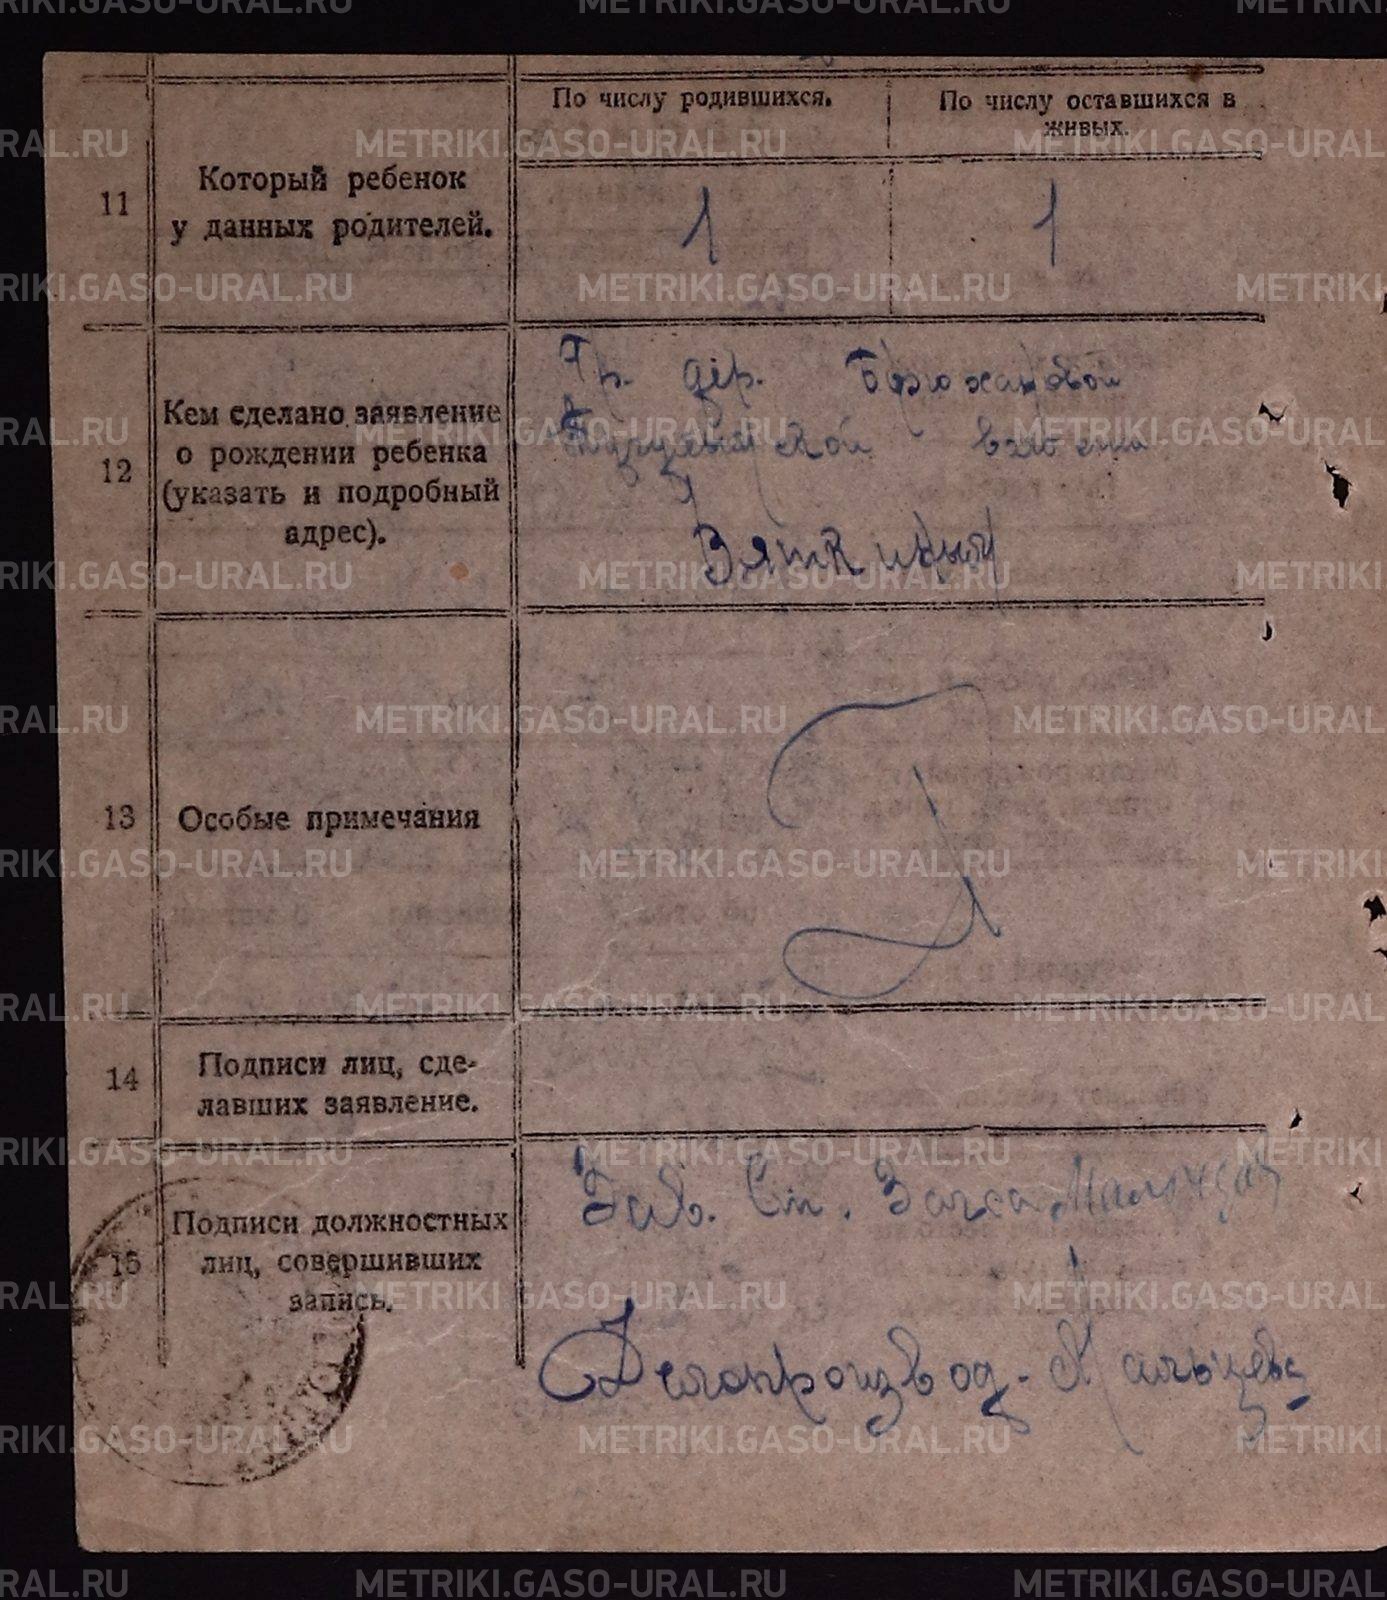 По числу родившихся.
По числу оставшихся в
живых.
11
Который ребенок
у данных родителей.
1
1
12
Кем сделано заявление
о рождении ребенка
(указать и подробный
адрес).
Гр. дер. Брюхановой
волости
Вяткиным
13
Особые примечания
14
Подписи лиц, сде-
лавших заявление.
15
Подписи должностных
лиц, совершивших
запись.
Зав. Ст. Загса
Делопроизвод. Мальцева
METRIKI.GASO-URAL.RU